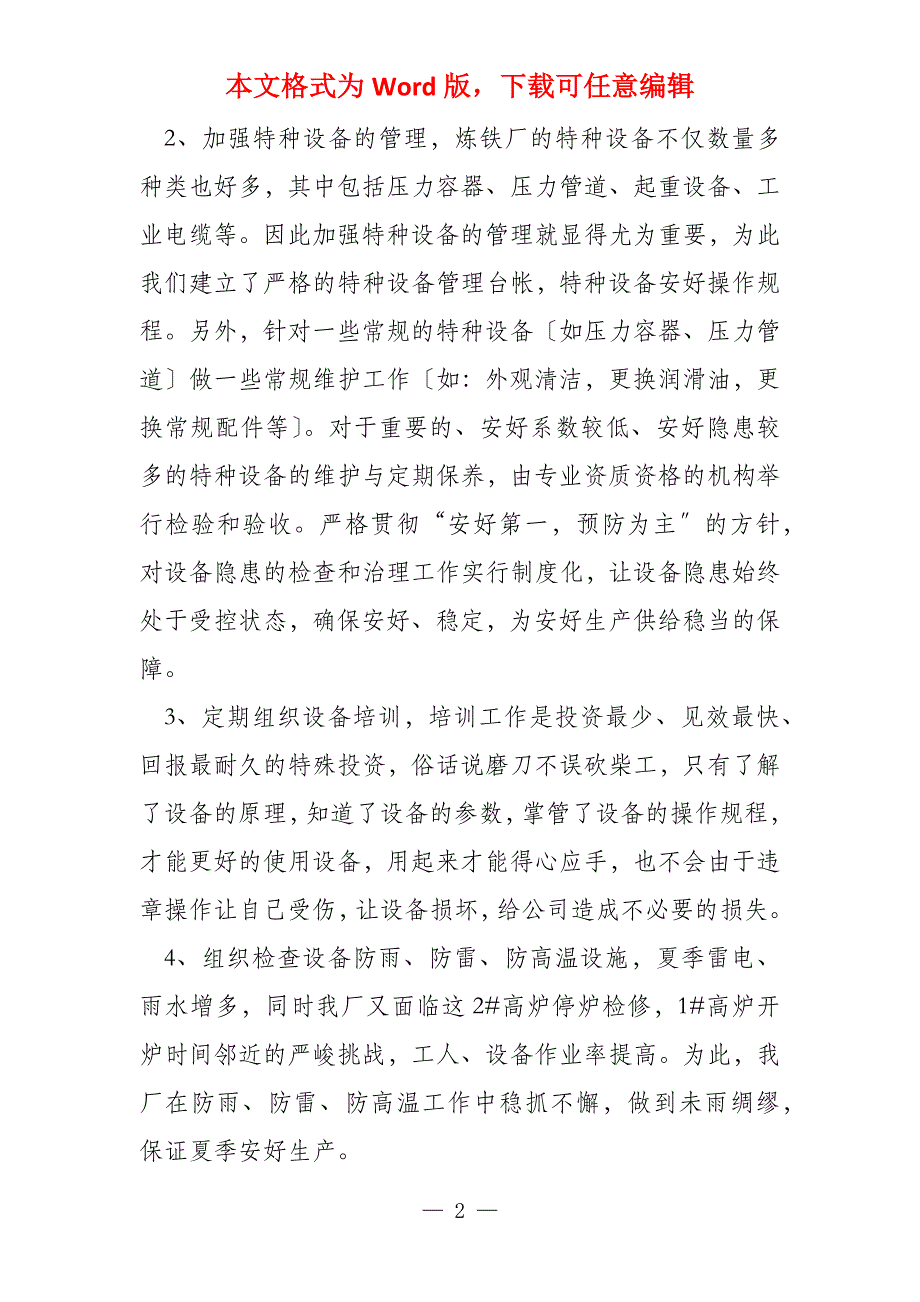 本文格式为 Word 版，下载可任意编辑
2、加强特种设备的管理，炼铁厂的特种设备不仅数量多
种类也好多，其中包括压力容器、压力管道、起重设备、工
业电缆等。因此加强特种设备的管理就显得尤为重要，为此
我们建立了严格的特种设备管理台帐，特种设备安好操作规
程。另外，针对一些常规的特种设备〔如压力容器、压力管
道〕做一些常规维护工作〔如：外观清洁，更换润滑油，更
换常规配件等〕。对于重要的、安好系数较低、安好隐患较
多的特种设备的维护与定期保养，由专业资质资格的机构举
行检验和验收。严格贯彻“安好第一，预防为主″的方针，
对设备隐患的检查和治理工作实行制度化，让设备隐患始终
处于受控状态，确保安好、稳定，为安好生产供给稳当的保
障。
3、定期组织设备培训，培训工作是投资最少、见效最快、
回报最耐久的特殊投资，俗话说磨刀不误砍柴工，只有了解
了设备的原理，知道了设备的参数，掌管了设备的操作规程，
才能更好的使用设备，用起来才能得心应手，也不会由于违
章操作让自己受伤，让设备损坏，给公司造成不必要的损失。
4、组织检查设备防雨、防雷、防高温设施，夏季雷电、
雨水增多，同时我厂又面临这 2#高炉停炉检修，1#高炉开
炉时间邻近的严峻挑战，工人、设备作业率提高。为此，我
厂在防雨、防雷、防高温工作中稳抓不懈，做到未雨绸缪，
保证夏季安好生产。
— 2 —